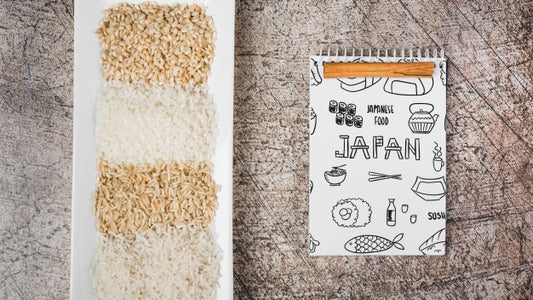 JAPANESE
FOOD
JAPAN
SUSH